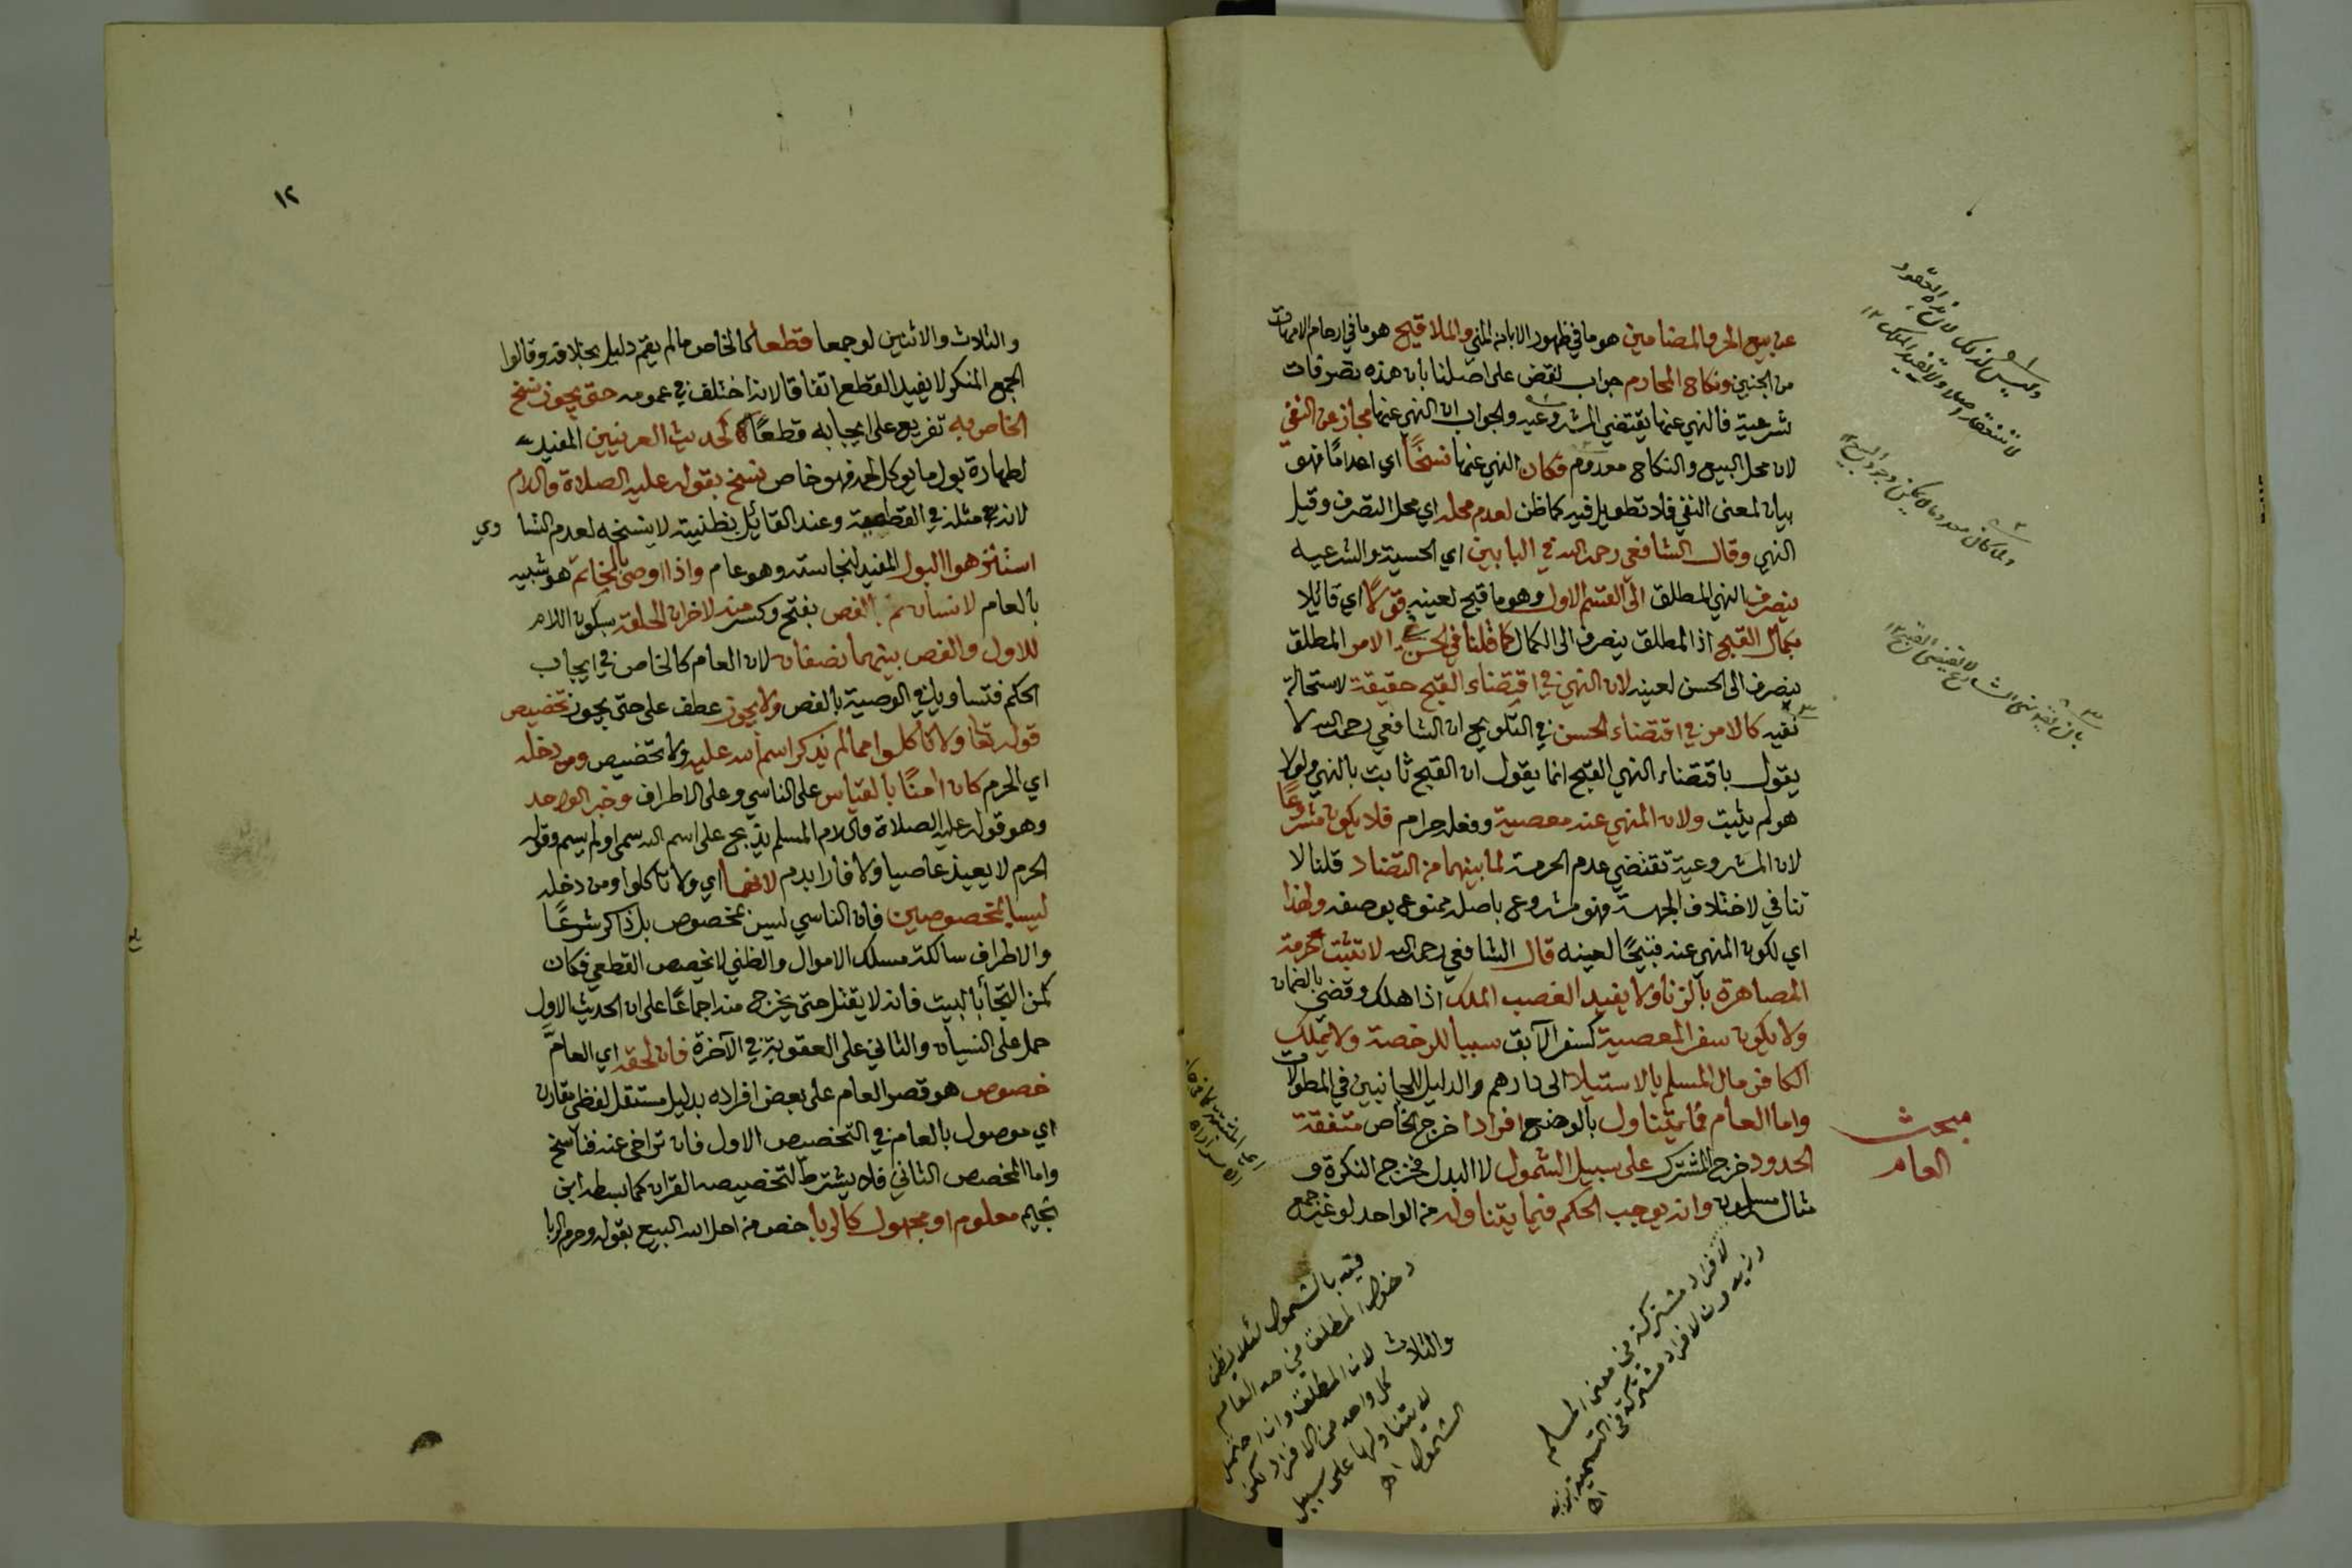 عن بيع الحر والمضامين هو ما في ظهور الاباء من المني والملاقيح هو ما في ارحام الامهات
من الجنين ونكاح المحارم جواب نقض على اصلنا بان هذه تصرفات
شرعية فالنهي عنها يقتضي المشروعية والجواب ان النهي عنها مجاز عن النفي
لان محل البيع والنكاح معدوم فكان النهي عنها نسخًا اي اعدامًا فهو
بيان لمعنى النفي فلا تطويل فيه كما ظن لعدم محله اي محل التصرف وقيل
النهي وقال الشافعي رحمه الله في البابين اي الحسية والشرعية
ينصرف النهي المطلق الى القسم الاول وهو ما قبح لعينه قولا اي قائلا
بكمال القبح اذ المطلق ينصرف الى الكمال كما قلنا في الحسن في الامر المطلق
ينصرف الى الحسن لعينه لان النهي في اقتضاء القبح حقيقة لاستحالة
نفيه كالامر في اقتضاء الحسن في التلويح ان الشافعي رحمه الله لا
يقول باقتضاء النهي القبح انما يقول ان القبح ثابت بالنهي ولولا
هو لم يثبت ولان المنهي عنه معصية وفعله حرام فلا يكون مشروعًا
لان المشروعية تقتضي عدم الحرمة لما بينهما من التضاد قلنا لا
تنافي لاختلاف الجهة فهو مشروع باصله ممنوع بوصفه ولهذا
اي لكون المنهي عنه قبيحًا لعينه قال الشافعي رحمه الله لا تثبت حرمة
المصاهرة بالزنا ولا يفيد الغصب الملك اذا هلك وقضي بالضمان
ولا يكون سفر المعصية كسفر الآبق سببا للرخصة ولا يملك
الكافر مال المسلم بالاستيلا الى دارهم والدليل للجانبين في المطولات
واما العام فما يتناول بالوضع افرادا خرج الخاص متفقة
الحدود خرج المشترك على سبيل الشمول لا البدل فخرج النكرة
مثاله مسلمون وانه يوجب الحكم فيما يتناوله من الواحد لو غير جمع
وليس كذلك لان هذه العقود
لا تنعقد اصلا ولا تفيد الملك ١٢
مبحث
العام
لا افراد مشتركة في معنى المسلم
وزيدون لافراد مشتركة في التسمية بزيد
اه
قيد بالشمول لئلا يظن
دخول المطلق في حد العام
لان المطلق وان احتمل
كل واحد من الافراد لكن
لا يتناولها على سبيل
الشمول اه
والثلاث
١٢
والثلاث والاثنين لو جمعا قطعا كالخاص ما لم يقم دليل بخلافه وقالوا
الجمع المنكر لا يفيد القطع اتفاقا لانه اختلف في عمومه حتى يجوز نسخ
الخاص به تفريع على ايجابه قطعًا كحديث العرنيين المفيد
لطهارة بول ما يوكل لحمه فهو خاص نسخ بقوله عليه الصلاة والسلام
لانه مثله في القطعية وعند القائل بظنيته لا ينسخه لعدم التساوي
استنزهوا البول المفيد لنجاسته وهو عام واذا اوصى بالخاتم هو شبيه
بالعام لانسان ثم بالفص بفتح وكسر منه لاخر ان الحلقة بسكون اللام
للاول والفص بينهما نصفان لان العام كالخاص في ايجاب
الحكم فتساويا في الوصية بالفص ولا يجوز عطف على حتى يجوز تخصيص
قوله تعا ولا تأكلوا مما لم يذكر اسم الله عليه ولا تخصيص ومن دخله
اي الحرم كان امنًا بالقياس على الناسي وعلى الاطراف وخبر الواحد
وهو قوله عليه الصلاة والسلام المسلم يذبح على اسم الله سمى او لم يسم وقوله
الحرم لا يعيذ عاصيا ولا فارا بدم لانهما اي ولا تاكلوا ومن دخله
ليسا بمخصوصين فان الناسي ليس بمخصوص بل ذاكر شرعًا
والاطراف سالكة مسلك الاموال والظني لا يخصص القطعي فكان
كمن التجأ بالبيت فانه لا يقتل حتى يخرج منه اجماعًا على ان الحديث الاول
حمل على النسيان والثاني على العقوبة في الآخرة فان لحقه اي العام
خصوص هو قصر العام على بعض افراده بدليل مستقل لفظي مقارن
اي موصول بالعام في التخصيص الاول فان تراخى عنه فناسخ
واما المخصص الثاني فلا يشترط لتخصيصه القران كما بسطه ابن
نجيم معلوم او مجهول كالربا خص من احل الله البيع بقوله وحرم الربا